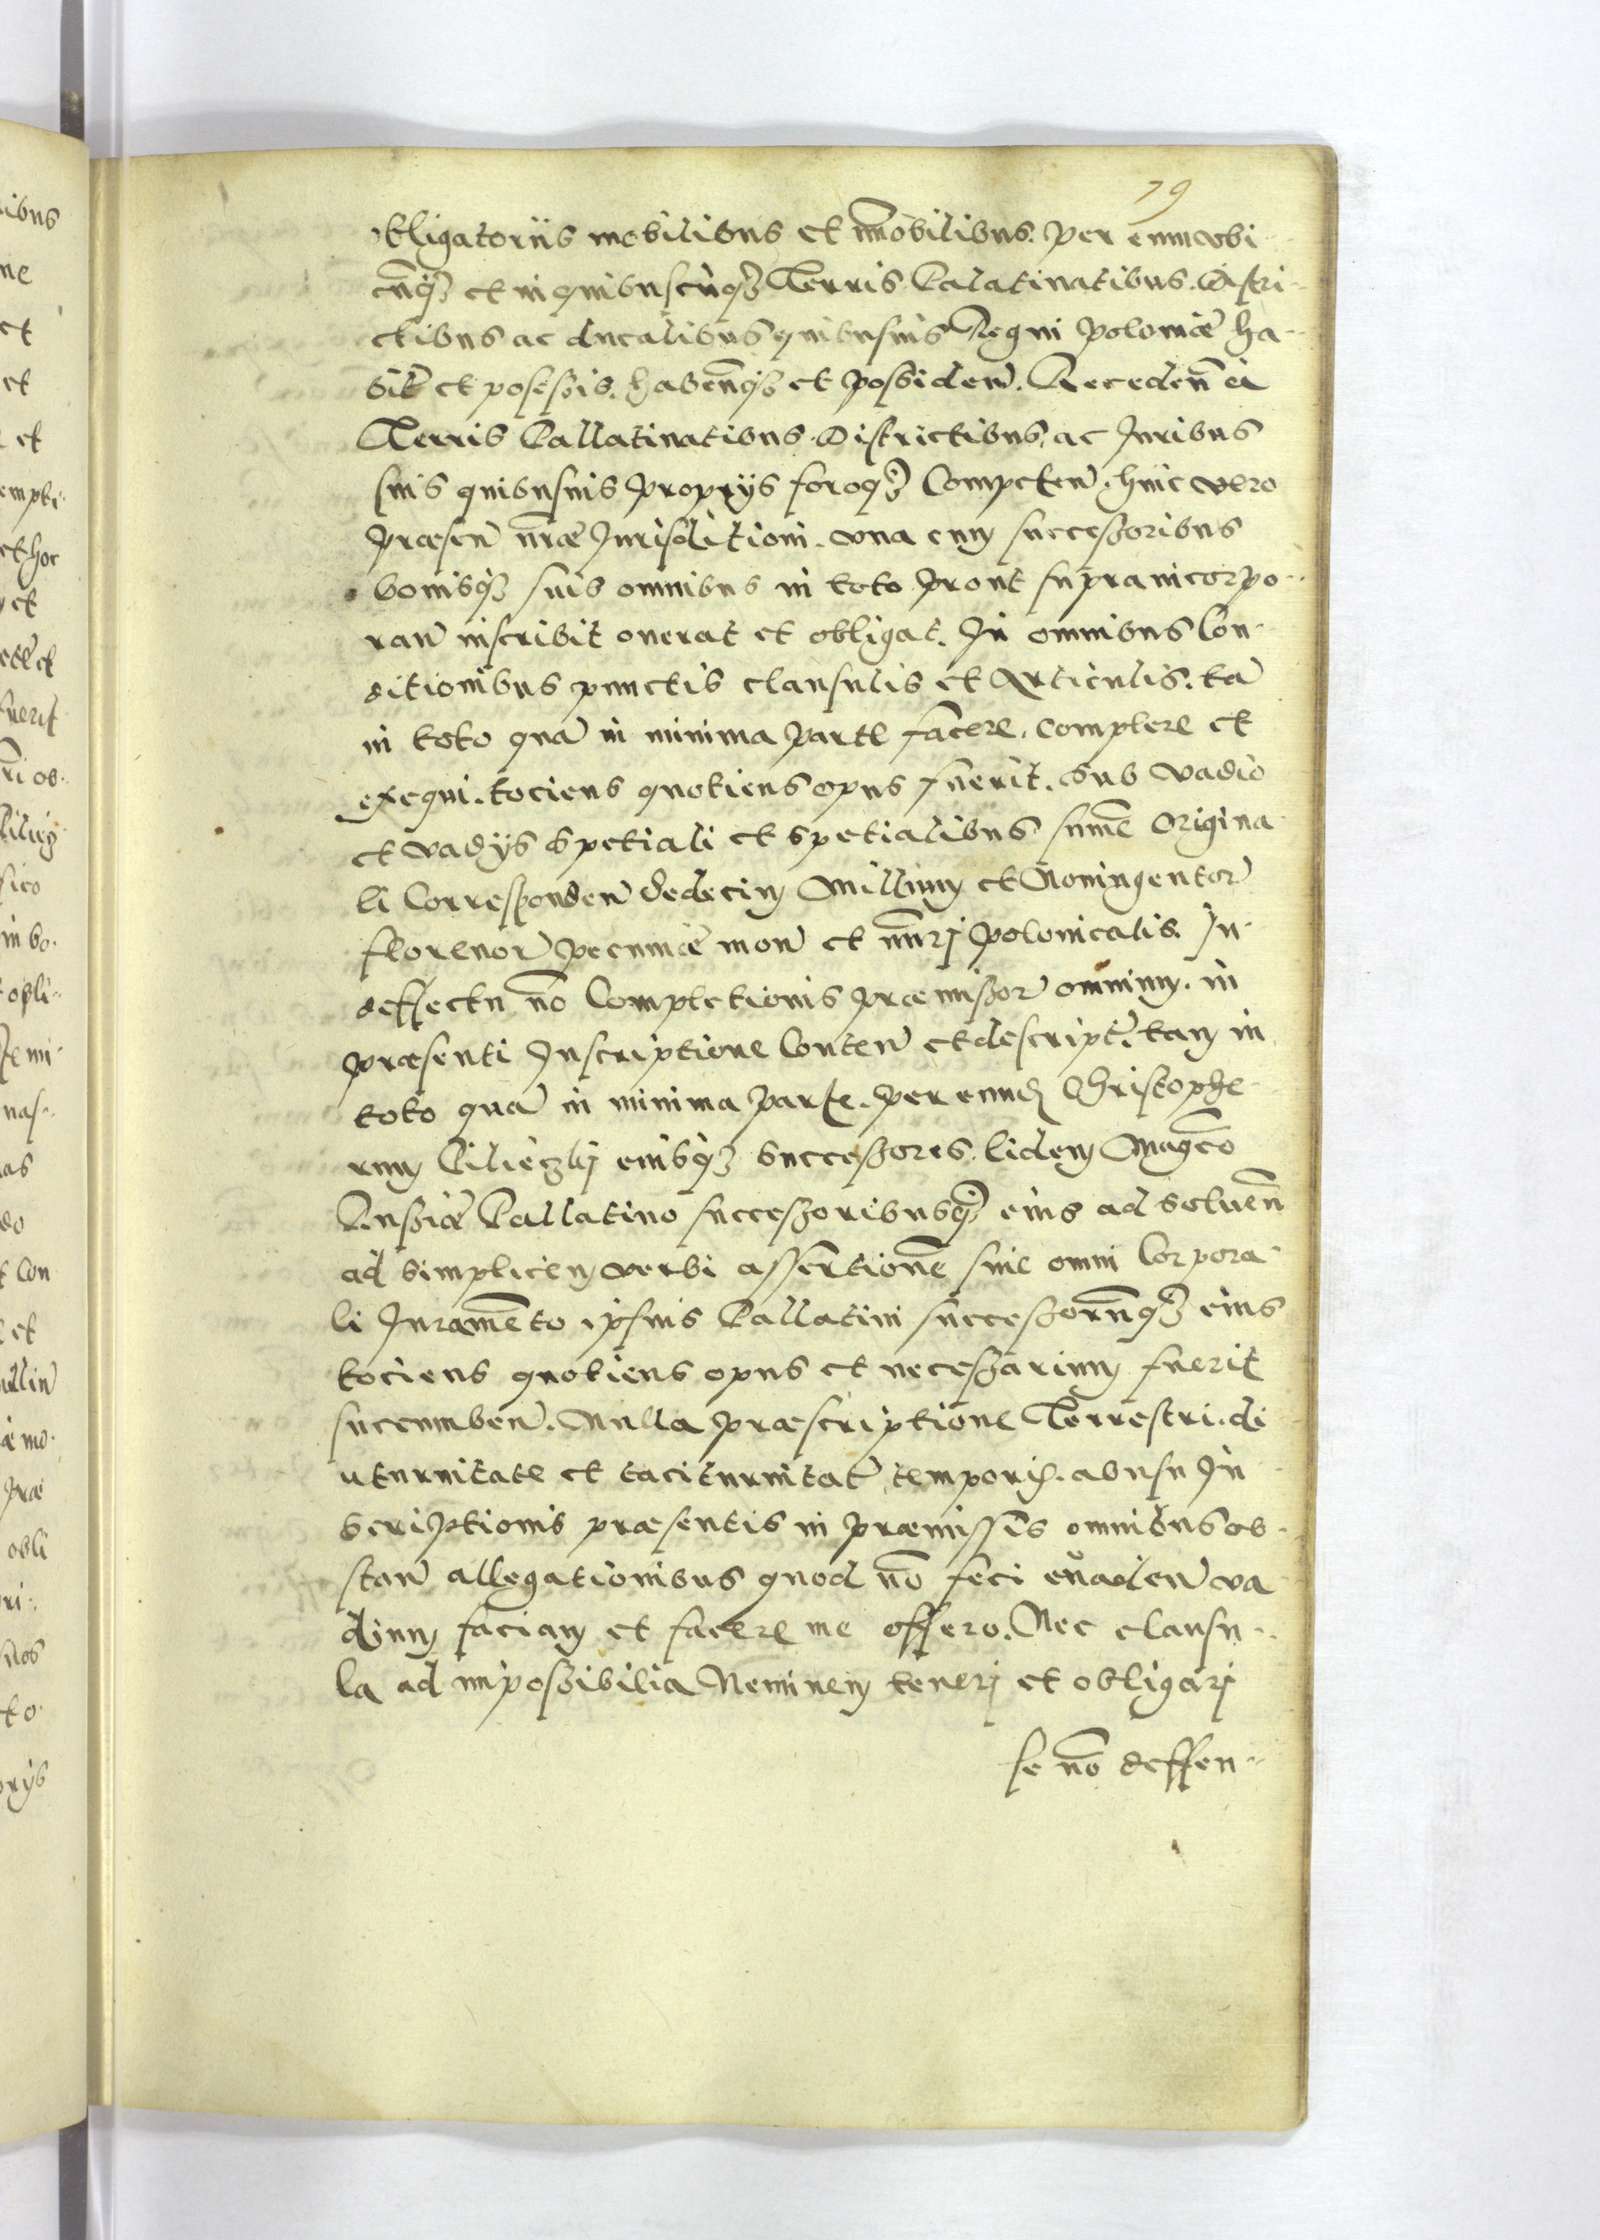 79
obligatoriis mobilibus et im̄obilibus. per eum vbi
cunq₃ et in quibuscunq₃ Terris Palatinatibus. Distri-
ctibus ac ducalibus quibusuis Regni Poloniæ ha-
bit̃ et posessis. habenq₃ et possiden̄. Recedeñ a
Terris Pallatinatibus. Districtibus, ac Juribus
suis quibusuis proprijs foroq₃ Competen̄. huic vero
præsen̄ nr̃æ Jurisditioni. vna cum successoribus
bonisq₃ suis omnibus in toto prout supra incorpo-
ran̄ inscribit onerat et obligat. In omnibus Con-
ditionibus punctis clausulis et Articulis. ta̅
in toto qua̅ in minima parte facere. complere et
exequi. tociens quotiens opus fuerit. sub vadio
et vadijs spetiali et spetialibus sum̄e origina
li Corresponden̄ dedecim Millium et Noningentor̄
florenor̄ pecuniæ mon̄ et nu̅eri polonicalis. In
deffectu no̅ Completionis præmissor̄ omnium. in
præsenti Inscriptione Conten̄ et descript̃. tam in
toto qua̅ in minima parte. per eund̃ Christophe
rum Pilieczkij eiusq₃ successores. Eidem Mag̃co
Russiæ Pallatino successoribusq₃ eius ad soluen̄
ad simplicem verbi assertione̅ sine omni Corpora-
li Jurame̅to ipsius Pallatini successorumq₃ eius
tociens quotiens opus et necessarium fuerit
succumben̄. Nulla præscriptione Terrestri. di
uturnitate et taciturnitat̃ temporis. abusu In
scriptionis præsentis in præmissis omnibus ob-
stan̄ allegationibus quod no̅ feci euaden̄ va
dium faciam et facere me offero. Nec clausu-
la ad impossibilia Neminem tenerj et obligarj
se no̅ deffen-